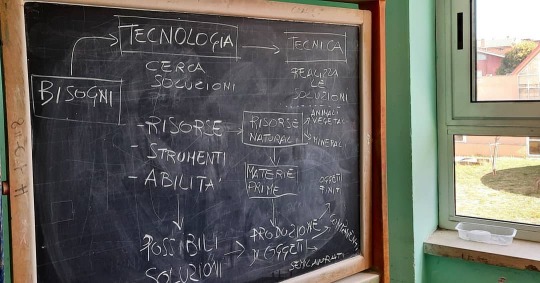 TECNOLOGIA
TECNICA
CERCA
SOLUZIONI
REALIZZA
LE
SOLUZIONI
BISOGNI
- RISORSE
- STRUMENTI
- ABILITÀ
RISORSE
NATURALI
ANIMALI
VEGETALI
MINERALI
MATERIE
PRIME
OGGETTI
FINITI
POSSIBILI
SOLUZIONI
PRODUZIONE
DI OGGETTI
SEMILAVORATI